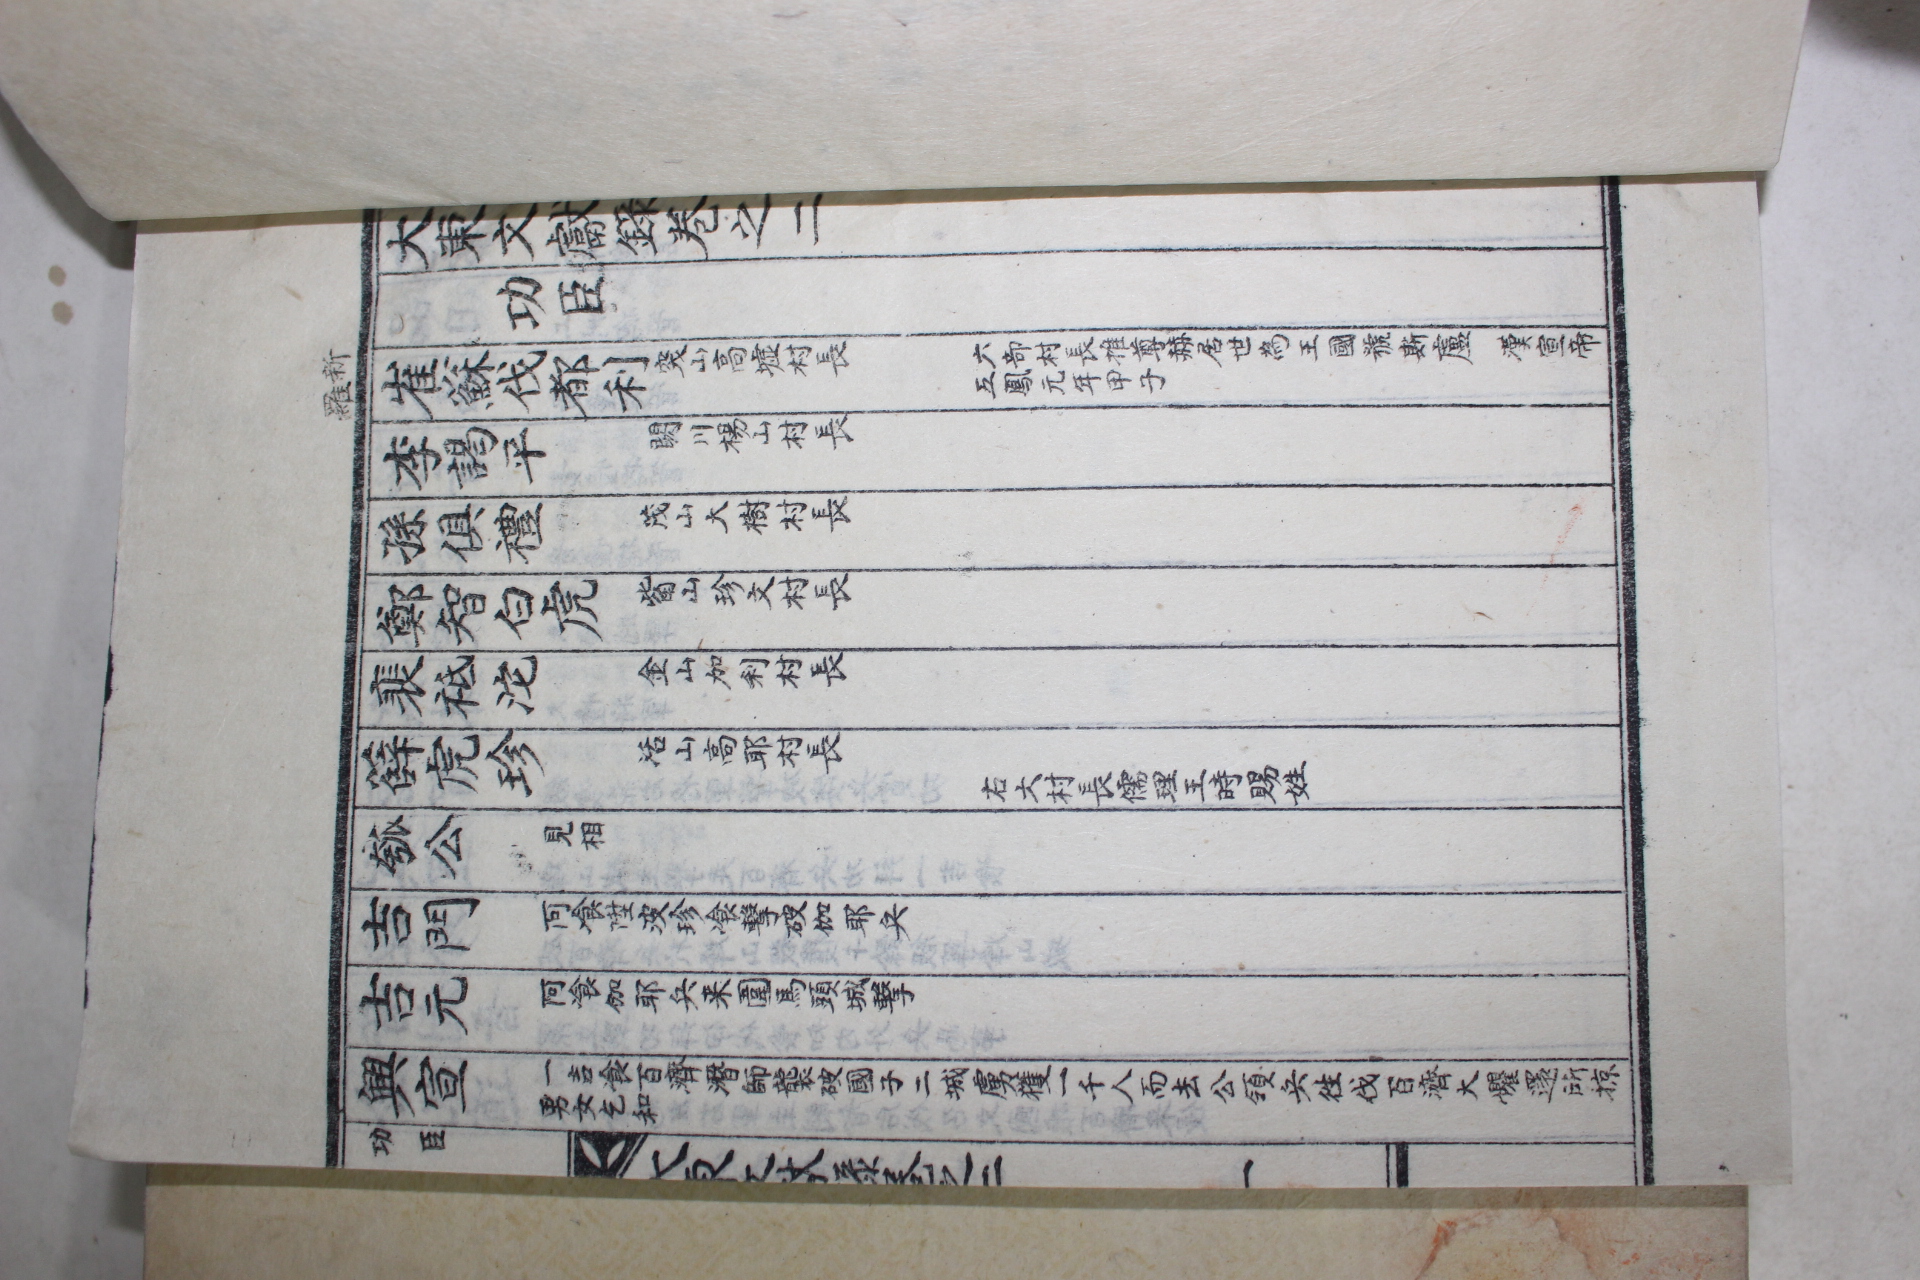 大東文獻錄卷之二
功臣
新羅
崔蘇伐都利 突山高墟村長 六部村長推尊赫居世為王國號斯盧 漢宣帝
五鳳元年甲子
李謁平 閼川楊山村長
孫俱禮 茂山大樹村長
鄭智白虎 觜山珍文村長
裴祗沱 金山加利村長
薛虎珍 活山高耶村長
右六村長儒理王時賜姓
瓠公 見相
吉門 阿飡陞波珍飡擊破伽耶兵
吉元 阿飡伽耶兵来圍馬頭城擊
興宣 一吉飡百濟潛師襲破國子二城虜獲一千人而去公領兵徃伐百濟大懼還所掠
男女乞和
功臣
大東文獻錄卷之二
一